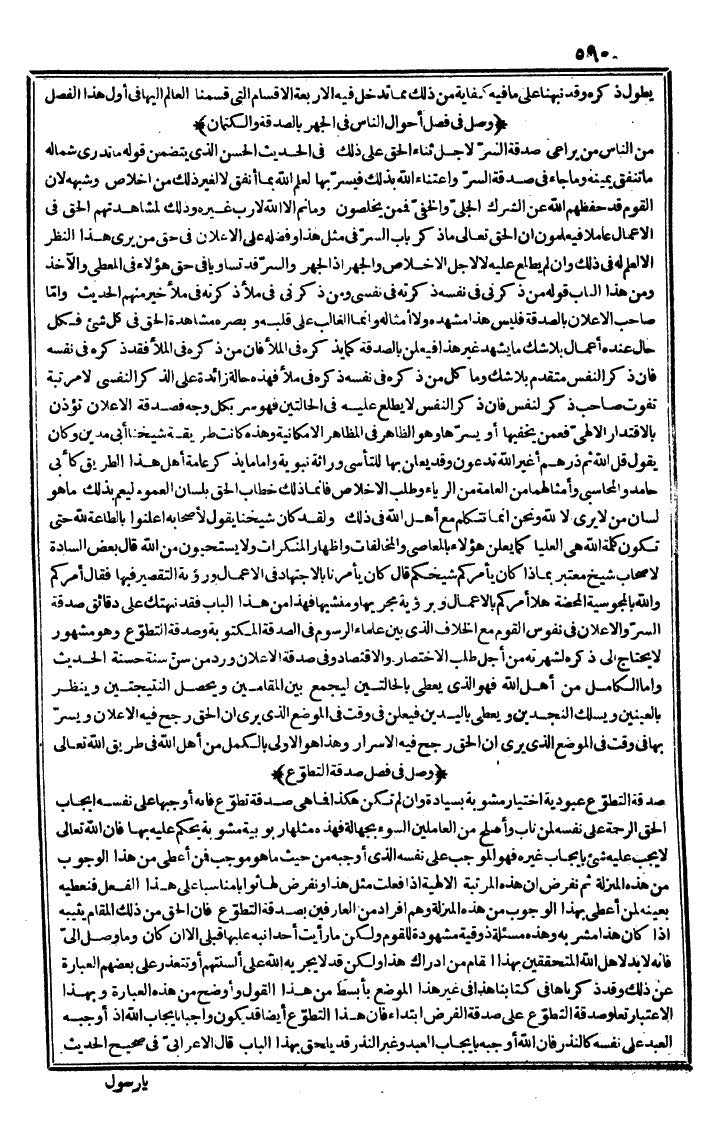 ٥٩٠
يطول ذكره وقد نبهنا على ما فيه كفاية من ذلك مما تدخل فيه الاربعة الاقسام التى قسمنا العالم اليها فى أول هذا الفصل
﴿وصل فى فصل أحوال الناس فى الجهر بالصدقة والكتمان﴾
من الناس من يراعى صدقة السرّ لاجل ثناء الحق على ذلك فى الحديث الحسن الذى يتضمن قوله ما تدرى شماله
ما تنفق يمينه وما جاء فى صدقة السرّ واعتناء الله بذلك فيسرّ بها لعلم الله بما أنفق لا لغير ذلك من اخلاص وشبهه لان
القوم قد حفظهم الله عن الشرك الجلىّ والخفىّ فمن يخلصون وما ثم الا الله لا رب غيره وذلك لمشاهدتهم الحق فى
الاعمال عاملا فيعلمون ان الحق تعالى ما ذكر باب السرّ فى مثل هذا وفضله على الاعلان فى حق من يرى هذا النظر
الا لعلم له فى ذلك وان لم يطلع عليه لا لاجل الاخلاص والجهر اذ الجهر والسرّ قد تساويا فى حق هؤلاء فى المعطى والآخذ
ومن هذا الباب قوله من ذكرنى فى نفسه ذكرته فى نفسى ومن ذكرنى فى ملأ ذكرته فى ملأ خير منهم الحديث وامّا
صاحب الاعلان بالصدقة فليس هذا مشهده ولا أمثاله وانما الغالب على قلبه وبصره مشاهدة الحق فى كل شئ فكل
حال عنده أعمال بلا شك ما يشهد غير هذا فيعلن بالصدقة كما يذكره فى الملأ فان من ذكره فى الملأ فقد ذكره فى نفسه
فان ذكر النفس متقدم بلا شك وما كل من ذكره فى نفسه ذكره فى ملأ فهذه حالة زائدة على الذكر النفسى لا مرتبة
تفوت صاحب ذكر النفس فان ذكر النفس لا يطلع عليه فى الحالتين فهو سر بكل وجه فصدقة الاعلان تؤذن
بالاقتدار الالهىّ فعمن يخفيها أو يسرّها وهو الظاهر فى المظاهر الامكانية وهذه كانت طريقة شيخنا أبى مدين وكان
يقول قل الله ثم ذرهم أغير الله تدعون وقد يعلن بها للتأسى وراثة نبوية واما ما يذكر عامة أهل هذا الطريق كأبى
حامد والمحاسبى وأمثالهما من العامة من الرياء وطلب الاخلاص فانما ذلك خطاب الحق بلسان العموم ليعم بذلك ما هو
لسان من لا يرى لا لله ونحن انما نتكلم مع أهل الله فى ذلك ولقد كان شيخنا يقول لأصحابه اعلنوا بالطاعة لله حتى
تكون كلمة الله هى العليا كما يعلن هؤلاء بالمعاصى والمخالفات واظهار المنكرات ولا يستحيون من الله قال بعض السادة
لاصحاب شيخ معتبر بماذا كان يأمركم شيخكم قال كان يأمرنا بالاجتهاد فى الاعمال ورؤية التقصير فيها فقال أمركم
والله بالمجوسية المحضة هلا أمركم بالاعمال وبرؤية مجريها ومنشيها فهذا من هذا الباب فقد نبهتك على دقائق صدقة
السرّ والاعلان فى نفوس القوم مع الخلاف الذى بين علماء الرسوم فى الصدقة المكتوبة وصدقة التطوّع وهو مشهور
لا يحتاج الى ذكره لشهرته من أجل طلب الاختصار والاقتصاد وفى صدقة الاعلان ورد من سنّ سنة حسنة الحديث
واما الكامل من أهل الله فهو الذى يعطى بالحالتين ليجمع بين المقامين ويحصل النتيجتين وينظر
بالعينين ويسلك النجدين ويعطى باليدين فيعلن فى وقت فى الموضع الذى يرى ان الحق رجح فيه الاعلان ويسرّ
بها فى وقت فى الموضع الذى يرى ان الحق رجح فيه الاسرار وهذا هو الاولى بالكمل من أهل الله فى طريق الله تعالى
﴿وصل فى فصل صدقة التطوّع﴾
صدقة التطوّع عبودية اختيار مشوبة بسيادة وان لم تكن هكذا فما هى صدقة تطوّع فانه أوجبها على نفسه ايجاب
الحق الرحمة على نفسه لمن تاب وأصلح من العاملين السوء بجهالة فهذه مثلها ربوبية مشوبة بحكم عليه بها فان الله تعالى
لا يجب عليه شئ بايجاب غيره فهو الموجب على نفسه الذى أوجبه من حيث ما هو موجب فمن أعطى من هذا الوجوب
من هذه المنزلة ثم نفرض ان هذه المرتبة الالهية اذا فعلت مثل هذا ونفرض لها ثوابا مناسبا على هذا الفعل فنعطيه
بعينه لمن أعطى بهذا الوجوب من هذه المنزلة وهم افراد من العارفين بصدقة التطوّع فان الحق من ذلك المقام يثيبه
اذا كان هذا مشربه وهذه مسئلة ذوقية مشهودة للقوم ولكن ما رأيت أحدا نبه عليها قبلى الا ان كان وما وصل الىّ
فانه لا بد لاهل الله المتحققين بهذا المقام من ادراك هذا ولكن قد لا يجريه الله على ألسنتهم أو تتعذر على بعضهم العبارة
عن ذلك وقد ذكرناها فى كتابنا هذا فى غير هذا الموضع بأبسط من هذا القول وأوضح من هذه العبارة وبهذا
الاعتبار تعلو صدقة التطوّع على صدقة الفرض ابتداء فان هذا التطوّع أيضا قد يكون واجبا بايجاب الله اذ أوجبه
العبد على نفسه كالنذر فان الله أوجبه بايجاب العبد وغير النذر قد يلحق بهذا الباب قال الاعرابىّ فى صحيح الحديث
يا رسول